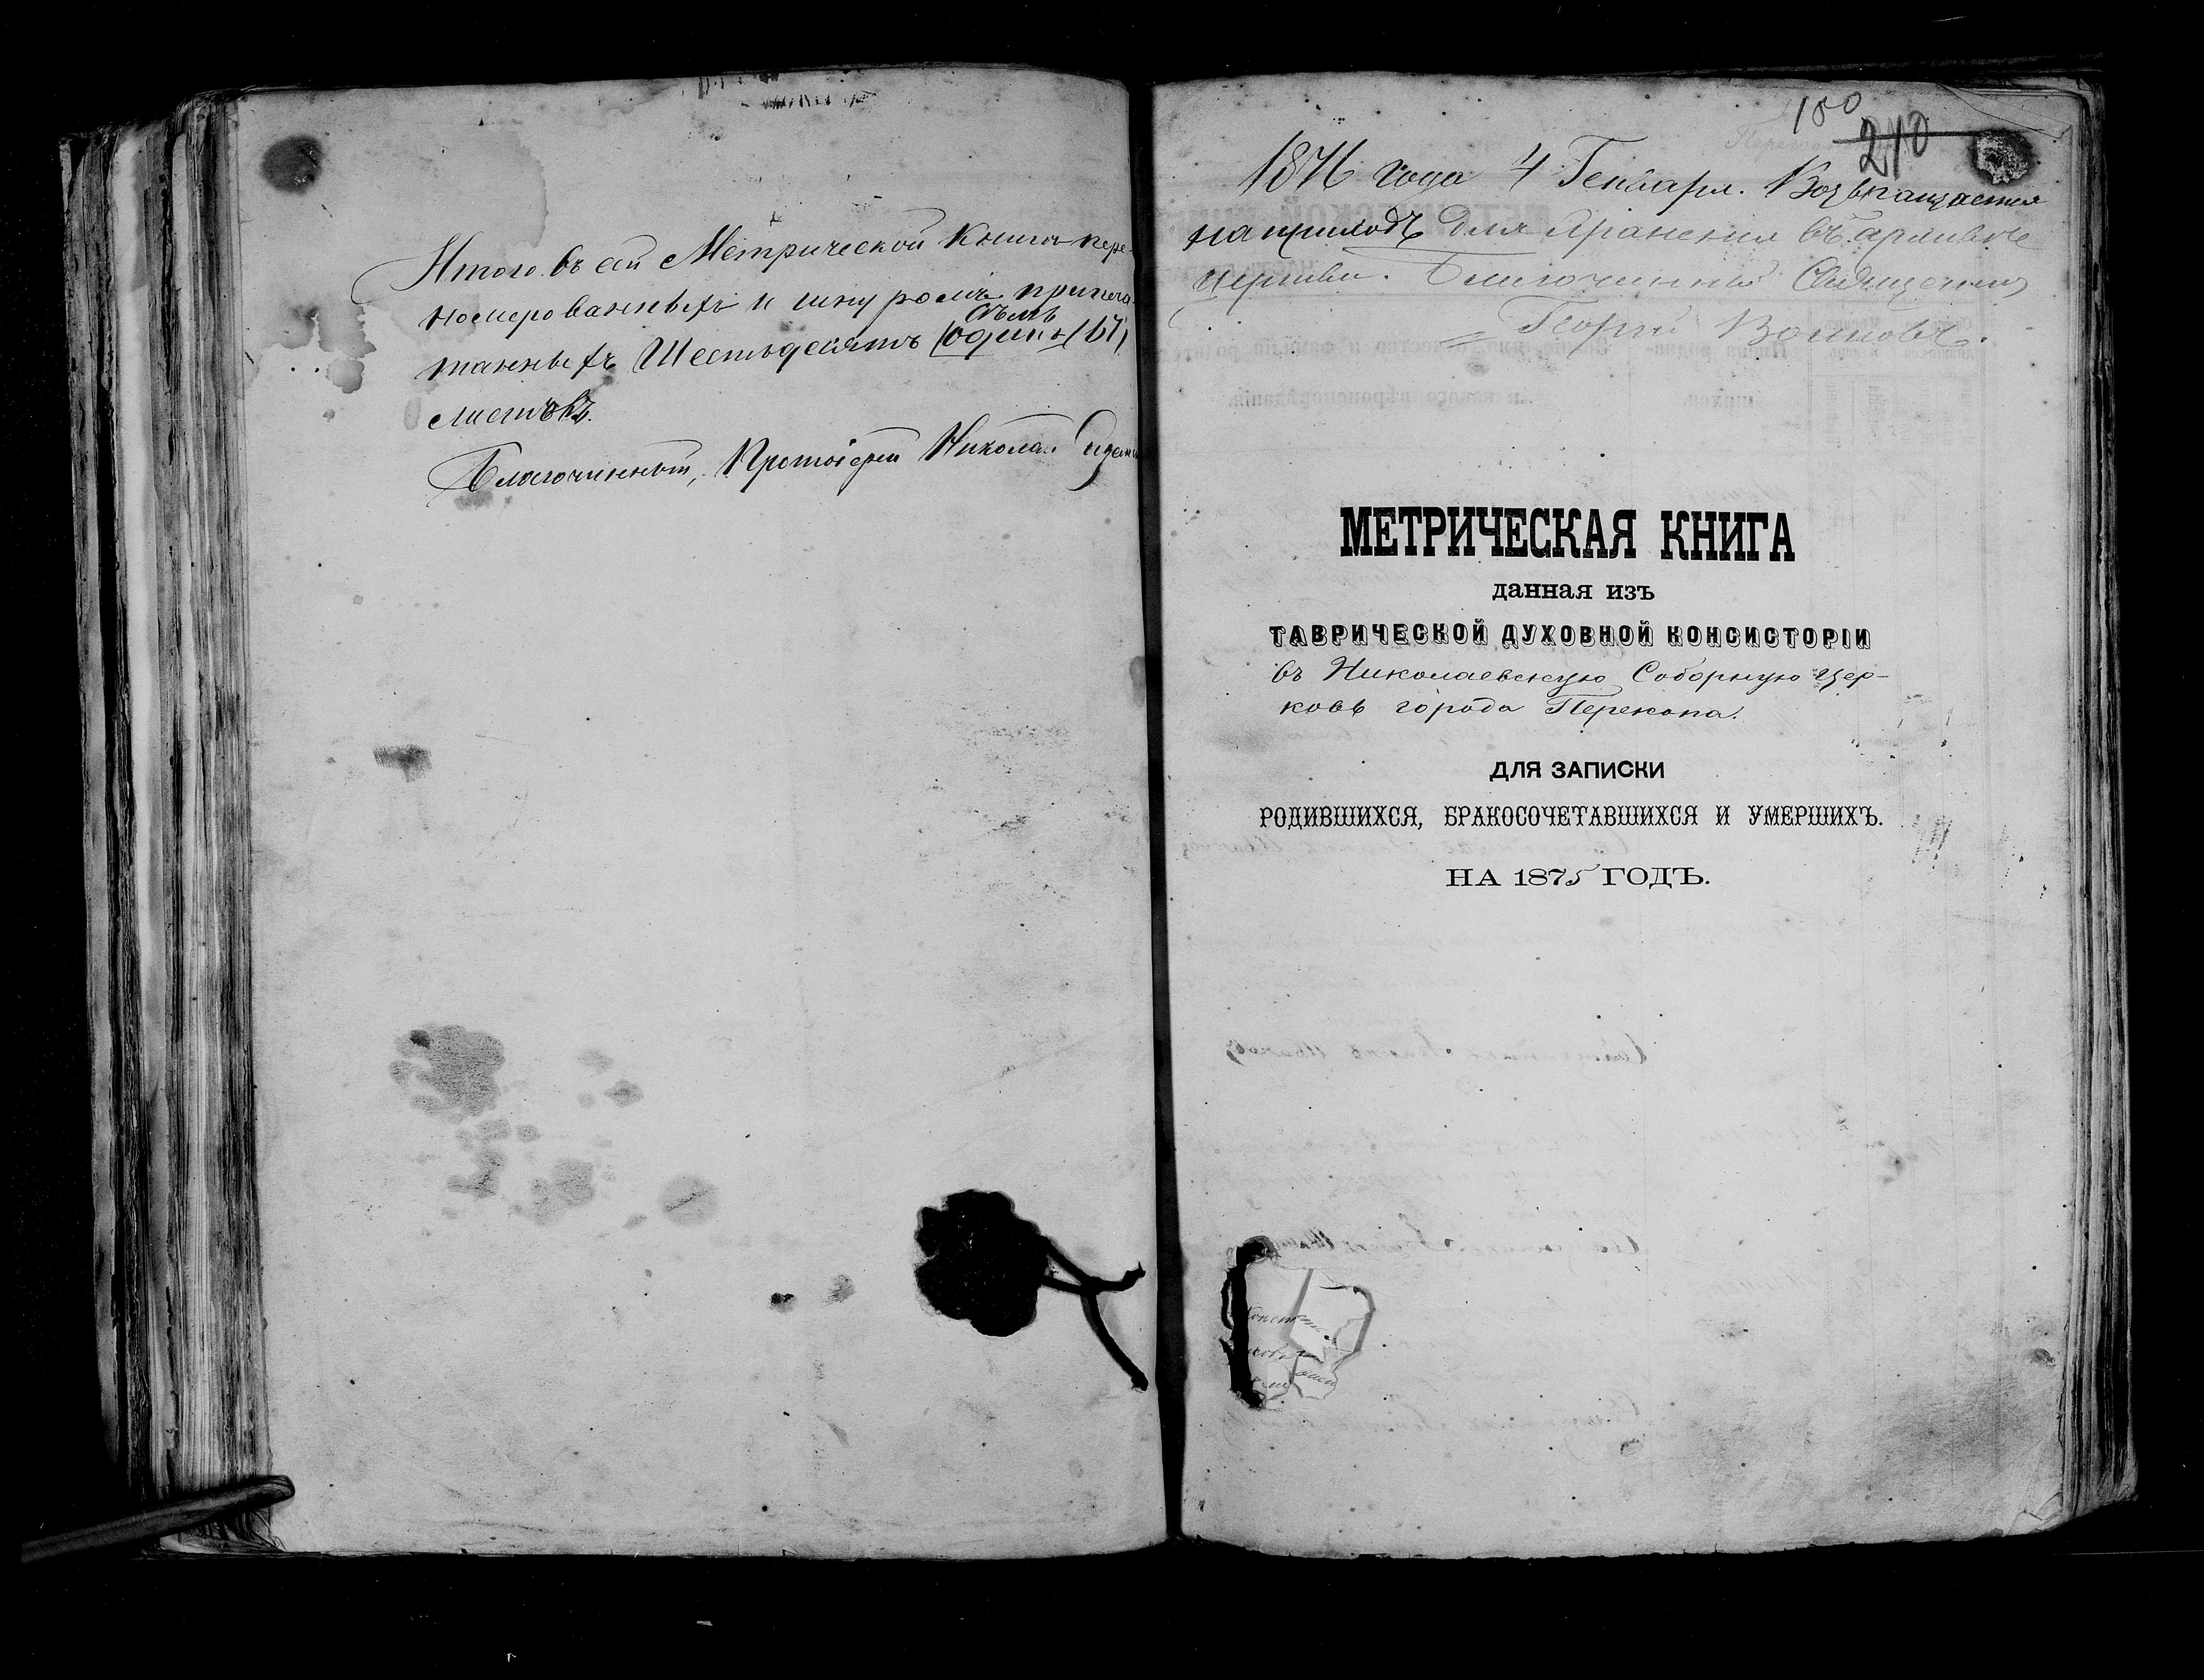 Итого въ сей Метрической Книгѣ пере-
номерованныхъ и шнуромъ припеча-
семь
танныхъ Шестьдесятъ (одинъ) (67)
листовъ.
Благочинный, Протоіерей Николай
180
210
1876 года 4 Генваря. Возвращается
на приходъ для храненія въ архивѣ
церкви. Благочинный Священникъ
Георгій Воиновъ.
МЕТРИЧЕСКАЯ КНИГА
данная изъ
ТАВРИЧЕСКОЙ ДУХОВНОЙ КОНСИСТОРІИ
въ Николаевскую Соборную цер-
ковь города Перекопа.
ДЛЯ ЗАПИСКИ
РОДИВШИХСЯ, БРАКОСОЧЕТАВШИХСЯ И УМЕРШИХЪ.
НА 1875 ГОДЪ.